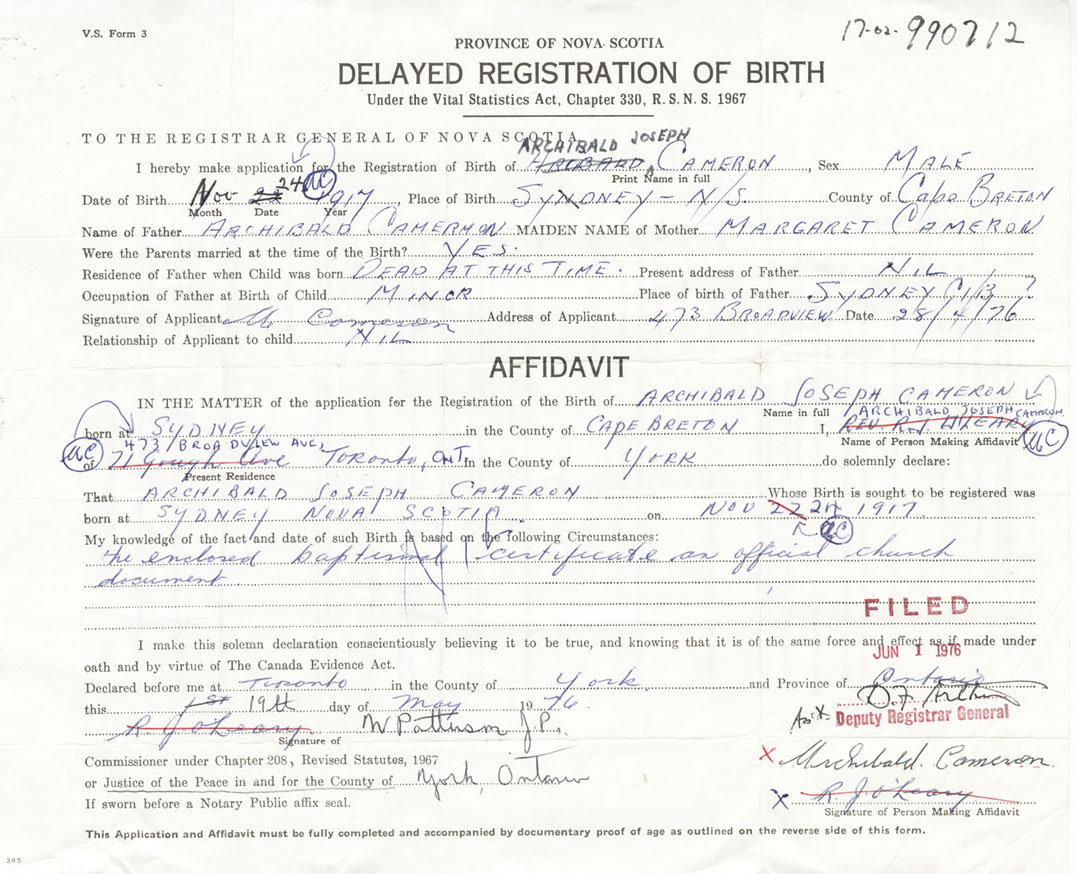 V.S. Form 3
17-02-990712
PROVINCE OF NOVA SCOTIA
DELAYED REGISTRATION OF BIRTH
Under the Vital Statistics Act, Chapter 330, R.S.N.S. 1967
TO THE REGISTRAR GENERAL OF NOVA SCOTIA
ARCHIBALD JOSEPH
I hereby make application for the Registration of Birth of CAMERON, Sex MALE
Print Name in full
24 AC
Date of Birth Nov 22 1917, Place of Birth SYDNEY - N/S. County of Cape BRETON
Month Date Year
Name of Father ARCHIBALD CAMERMON MAIDEN NAME of Mother MARGARET CAMERON
Were the Parents married at the time of the Birth? YES.
Residence of Father when Child was born DEAD AT THIS TIME. Present address of Father NIL
Occupation of Father at Birth of Child MINOR Place of birth of Father SYDNEY C/B ?
Signature of Applicant A Cameron Address of Applicant 473 BROADVIEW Date 28/4/76
Relationship of Applicant to child NIL
AFFIDAVIT
IN THE MATTER of the application for the Registration of the Birth of ARCHIBALD JOSEPH CAMERON
Name in full
ARCHIBALD JOSEPH CAMERON
born at SYDNEY in the County of CAPE BRETON I, REV. R.J. O'LEARY
Name of Person Making Affidavit AC
473 BROADVIEW AVE,
AC of 71 Gough Ave TORONTO, ONT. In the County of YORK do solemnly declare:
Present Residence
That ARCHIBALD JOSEPH CAMERON Whose Birth is sought to be registered was
born at SYDNEY NOVA SCOTIA on NOV 22 24 1917.
AC
My knowledge of the fact and date of such Birth is based on the following Circumstances:
the enclosed baptismal certificate an official church
document
FILED
I make this solemn declaration conscientiously believing it to be true, and knowing that it is of the same force and effect as if made under
JUN 1 1976
oath and by virtue of The Canada Evidence Act.
Declared before me at Toronto in the County of York and Province of Ontario
this 1st 19th day of May 1976.
Ass't Deputy Registrar General
R J O'Leary W Patterson J.P.
Signature of
Commissioner under Chapter 208, Revised Statutes, 1967
x Archibald. Cameron.
or Justice of the Peace in and for the County of York, Ontario
x R J O'Leary
If sworn before a Notary Public affix seal.
Signature of Person Making Affidavit
This Application and Affidavit must be fully completed and accompanied by documentary proof of age as outlined on the reverse side of this form.
385